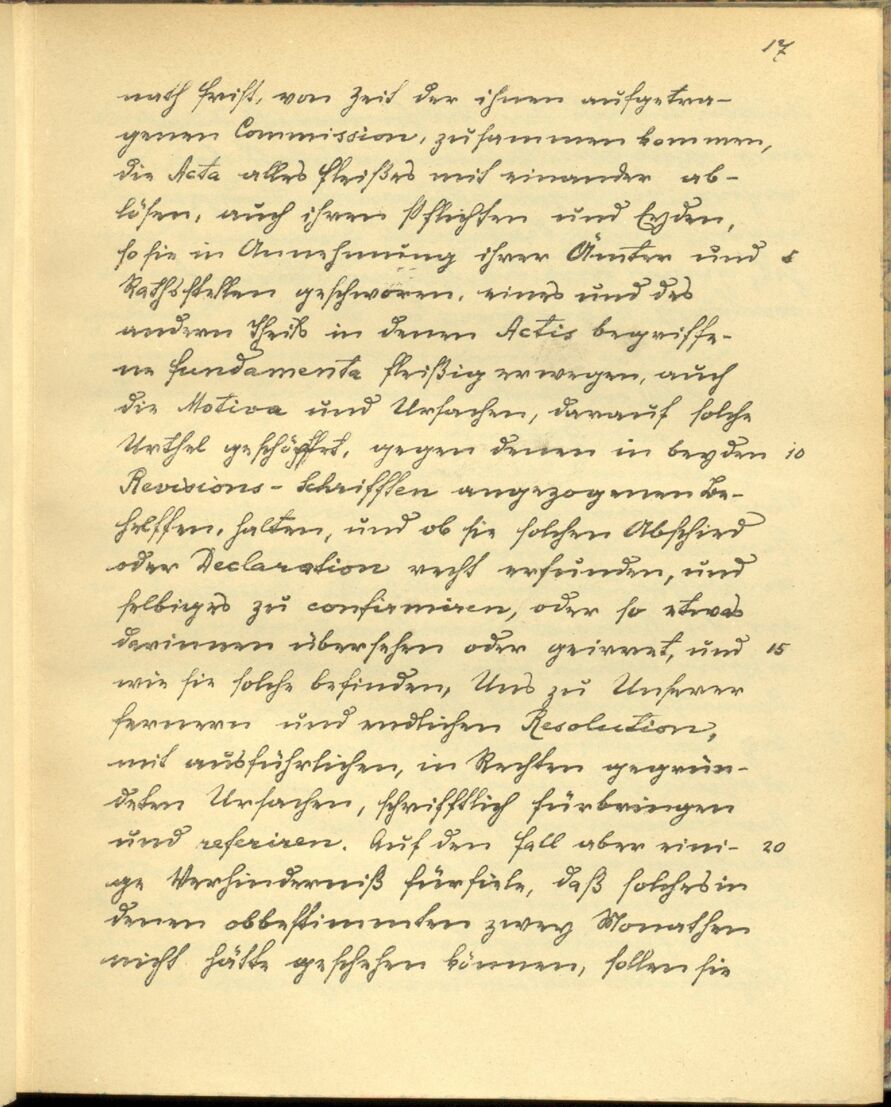 17
nath frist, von Zeit der ihnen aufgetra-
genen Commission, zusammen kommen,
die Acta alles fleißes mit einander ab-
lösen, auch ihren Pflichten und Eyden,
so sie in Annehmung ihrer Ämter und 5
Rathsstellen geschworen, eines und des
andern Theils in denen Actis begriffe-
ne fundamenta fleißig erwegen, auch
die Motiva und Ursachen, darauf solche
Urthel geschöpffet, gegen denen in beyden 10
Revisions-Schrifften angezogenen Be-
helffen, halten, und ob sie solchen Abschied
oder Declaration recht erfunden, und
selbiges zu confirmiren, oder so etwas
darinnen übersehen oder geirret, und 15
wie sie solche befinden, Uns zu Unserer
fernern und endlichen Resolution,
mit ausführlichen, in Rechten gegrün-
deten Ursachen, schrifftlich fürbringen
und referiren. Auf den fall aber eini- 20
ge Verhinderniß fürfiele, daß solches in
denen obbestimmten zwey Monathen
nicht hätte geschehen können, sollen sie